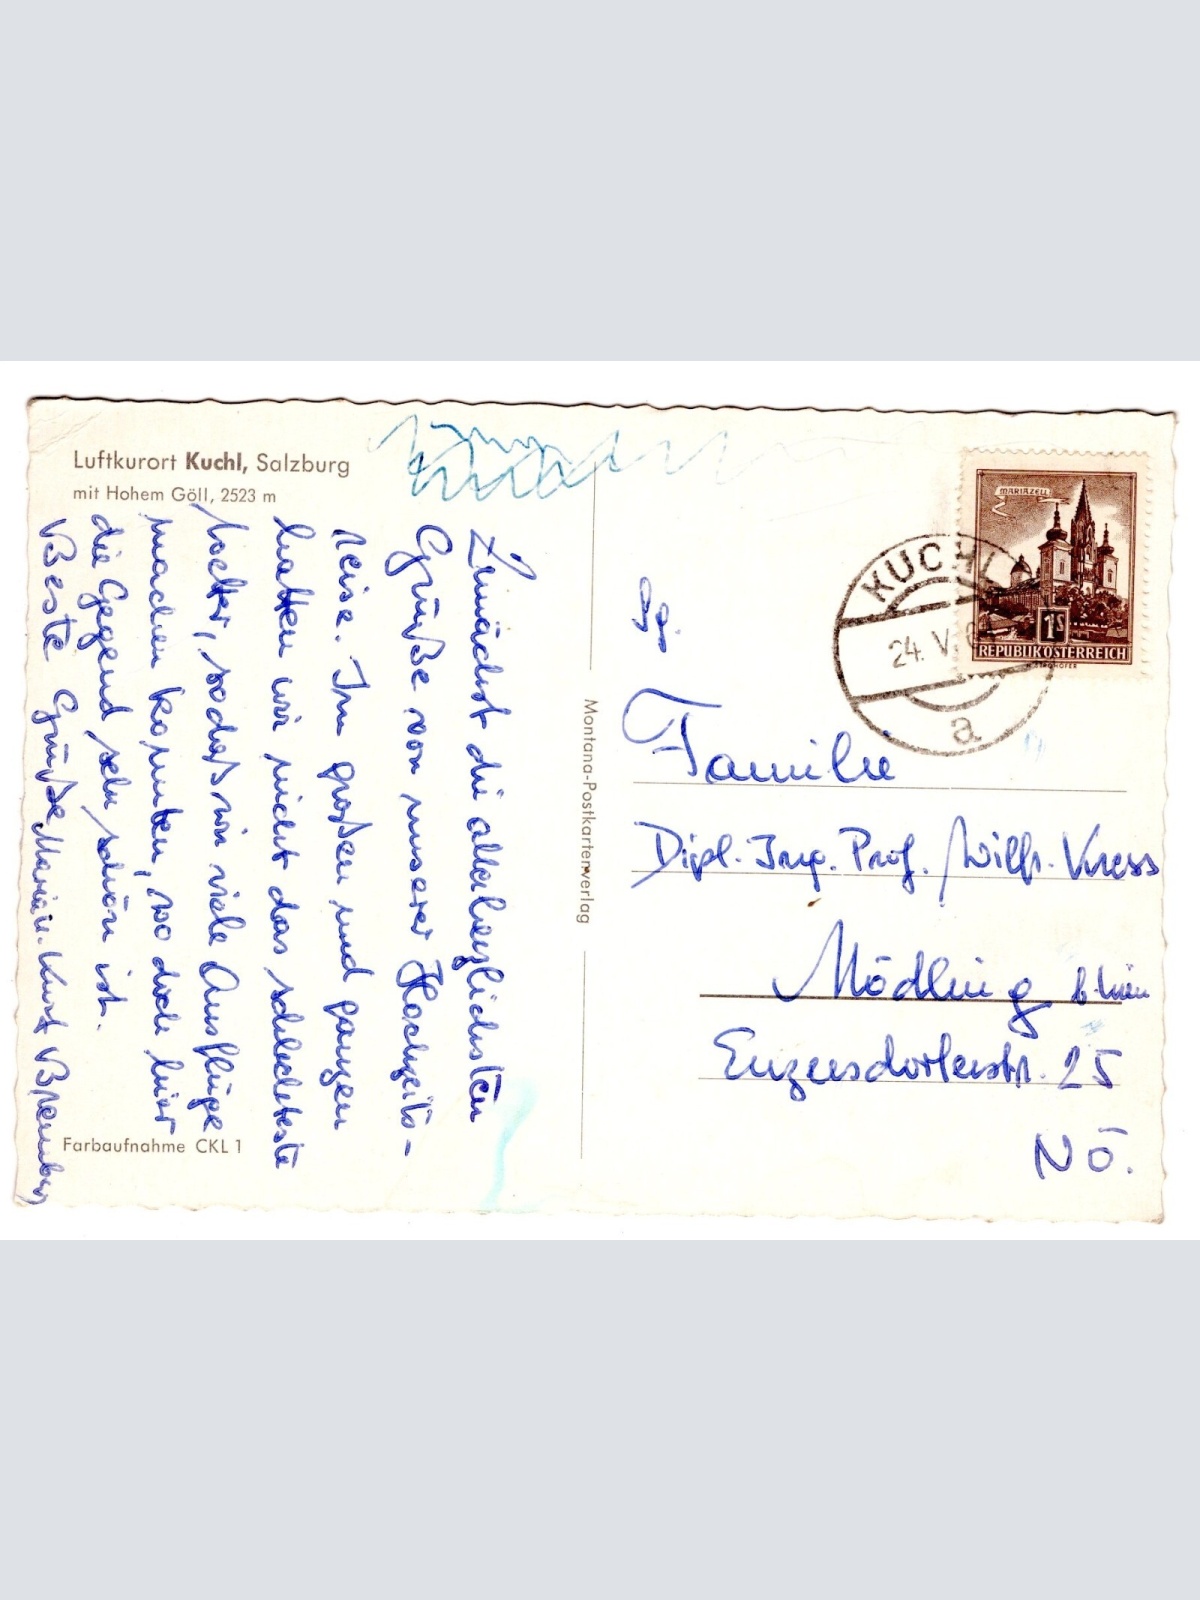 Luftkurort Kuchl, Salzburg
mit Hohem Göll, 2523 m
Zunächst die allerherzlichsten
Grüße von unserer Hochzeits-
reise. Im großen und ganzen
hatten wir nicht das schlechteste
Wetter, sodaß wir viele Ausflüge
machen konnten, wo doch hier
die Gegend sehr schön ist.
Beste Grüße Maria u. Kurt
Farbaufnahme CKL 1
Montana-Postkartenverlag
MARIAZELL
1S
REPUBLIK ÖSTERREICH
KUCHL
24. V.
a
Sg.
Familie
Dipl. Ing. Prof. Wilfr. Kress
Mödling b. Wien
Enzersdorferstr. 25
NÖ.